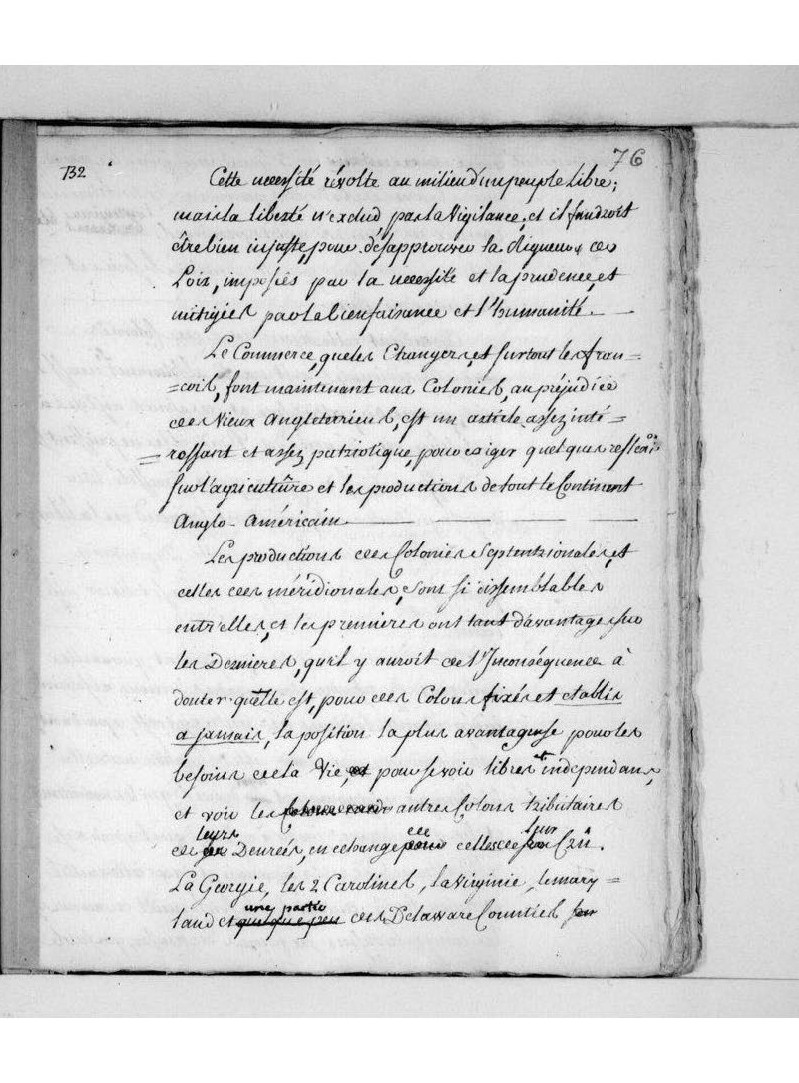 76
132
Cette necessité révolte au milieu d'un peuple Libre;
mais la liberté n'exclud pas la Vigilance, et il faudroit
être bien injuste, pour désapprouver la Rigueur des
Loix, imposées par la necessité et la prudence, et
mitigées par la bienfaisance et l'humanité.
Le Commerce, que les Etrangers, et surtout les fran=
=cois, font maintenant aux Colonies, au préjudice
des Vieux Angleterriens, est un article assez inté=
=ressant et assez patriotique, pour exiger quelques
sur l'agriculture et les productions de tout le Continent
Anglo-Américain
Les productions des Colonies Septentrionales, et
celles des méridionales, sont si dissemblables
entr'elles, et les premieres ont tant d'avantages sur
les Dernieres, qu'il y auroit de l'Inconséquence à
douter quelle est, pour des Colons fixés et etablis
a jamais, la position la plus avantageuse pour les
besoins de la Vie, pour se voir libres et independans,
et voir les autres Colons tributaires
de leurs Denrées, en echange de celles de leur Crû.
La Georgie, les 2 Carolines, la Virginie, le mary=
land et une partie des Delaware Counties